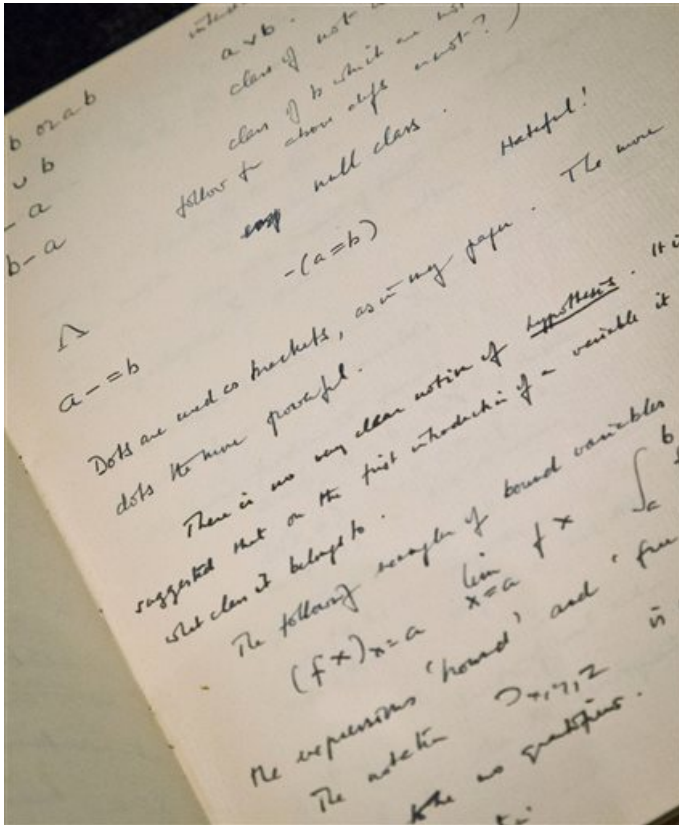 a ∨ b.
b or ab class of not
∪ b class of b which are not
- a follow from above defs or not?)
b - a null class.
Λ -(a = b) Hateful!
a - = b
Dots are used as brackets, as in my paper. The more
dots the more powerful.
There is no very clear notion of hypothesis. It is
suggested that on the first introduction of a variable it
what class it belongs to.
The following examples of bound variables
(f x)x=a lim x=a f x ∫ a b
the expressions 'bound' and 'free
The notation ⊃x,y,z is
the no quantifiers.